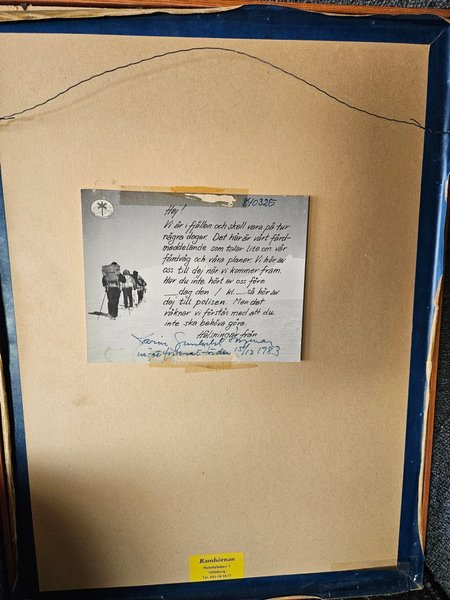 840325
Hej!
Vi är i fjällen och skall vara på tur
några dagar. Det här är vårt färd-
meddelande som talar lite om vår
färdväg och våra planer. Vi hör av
oss till dej när vi kommer fram.
Har du inte hört av oss före
__dag den / kl__så hör av
dej till polisen. Men det
räknar vi förstås med att du
inte ska behöva göra.
Hälsningar från
1983
Ramhörnan
Göteborg